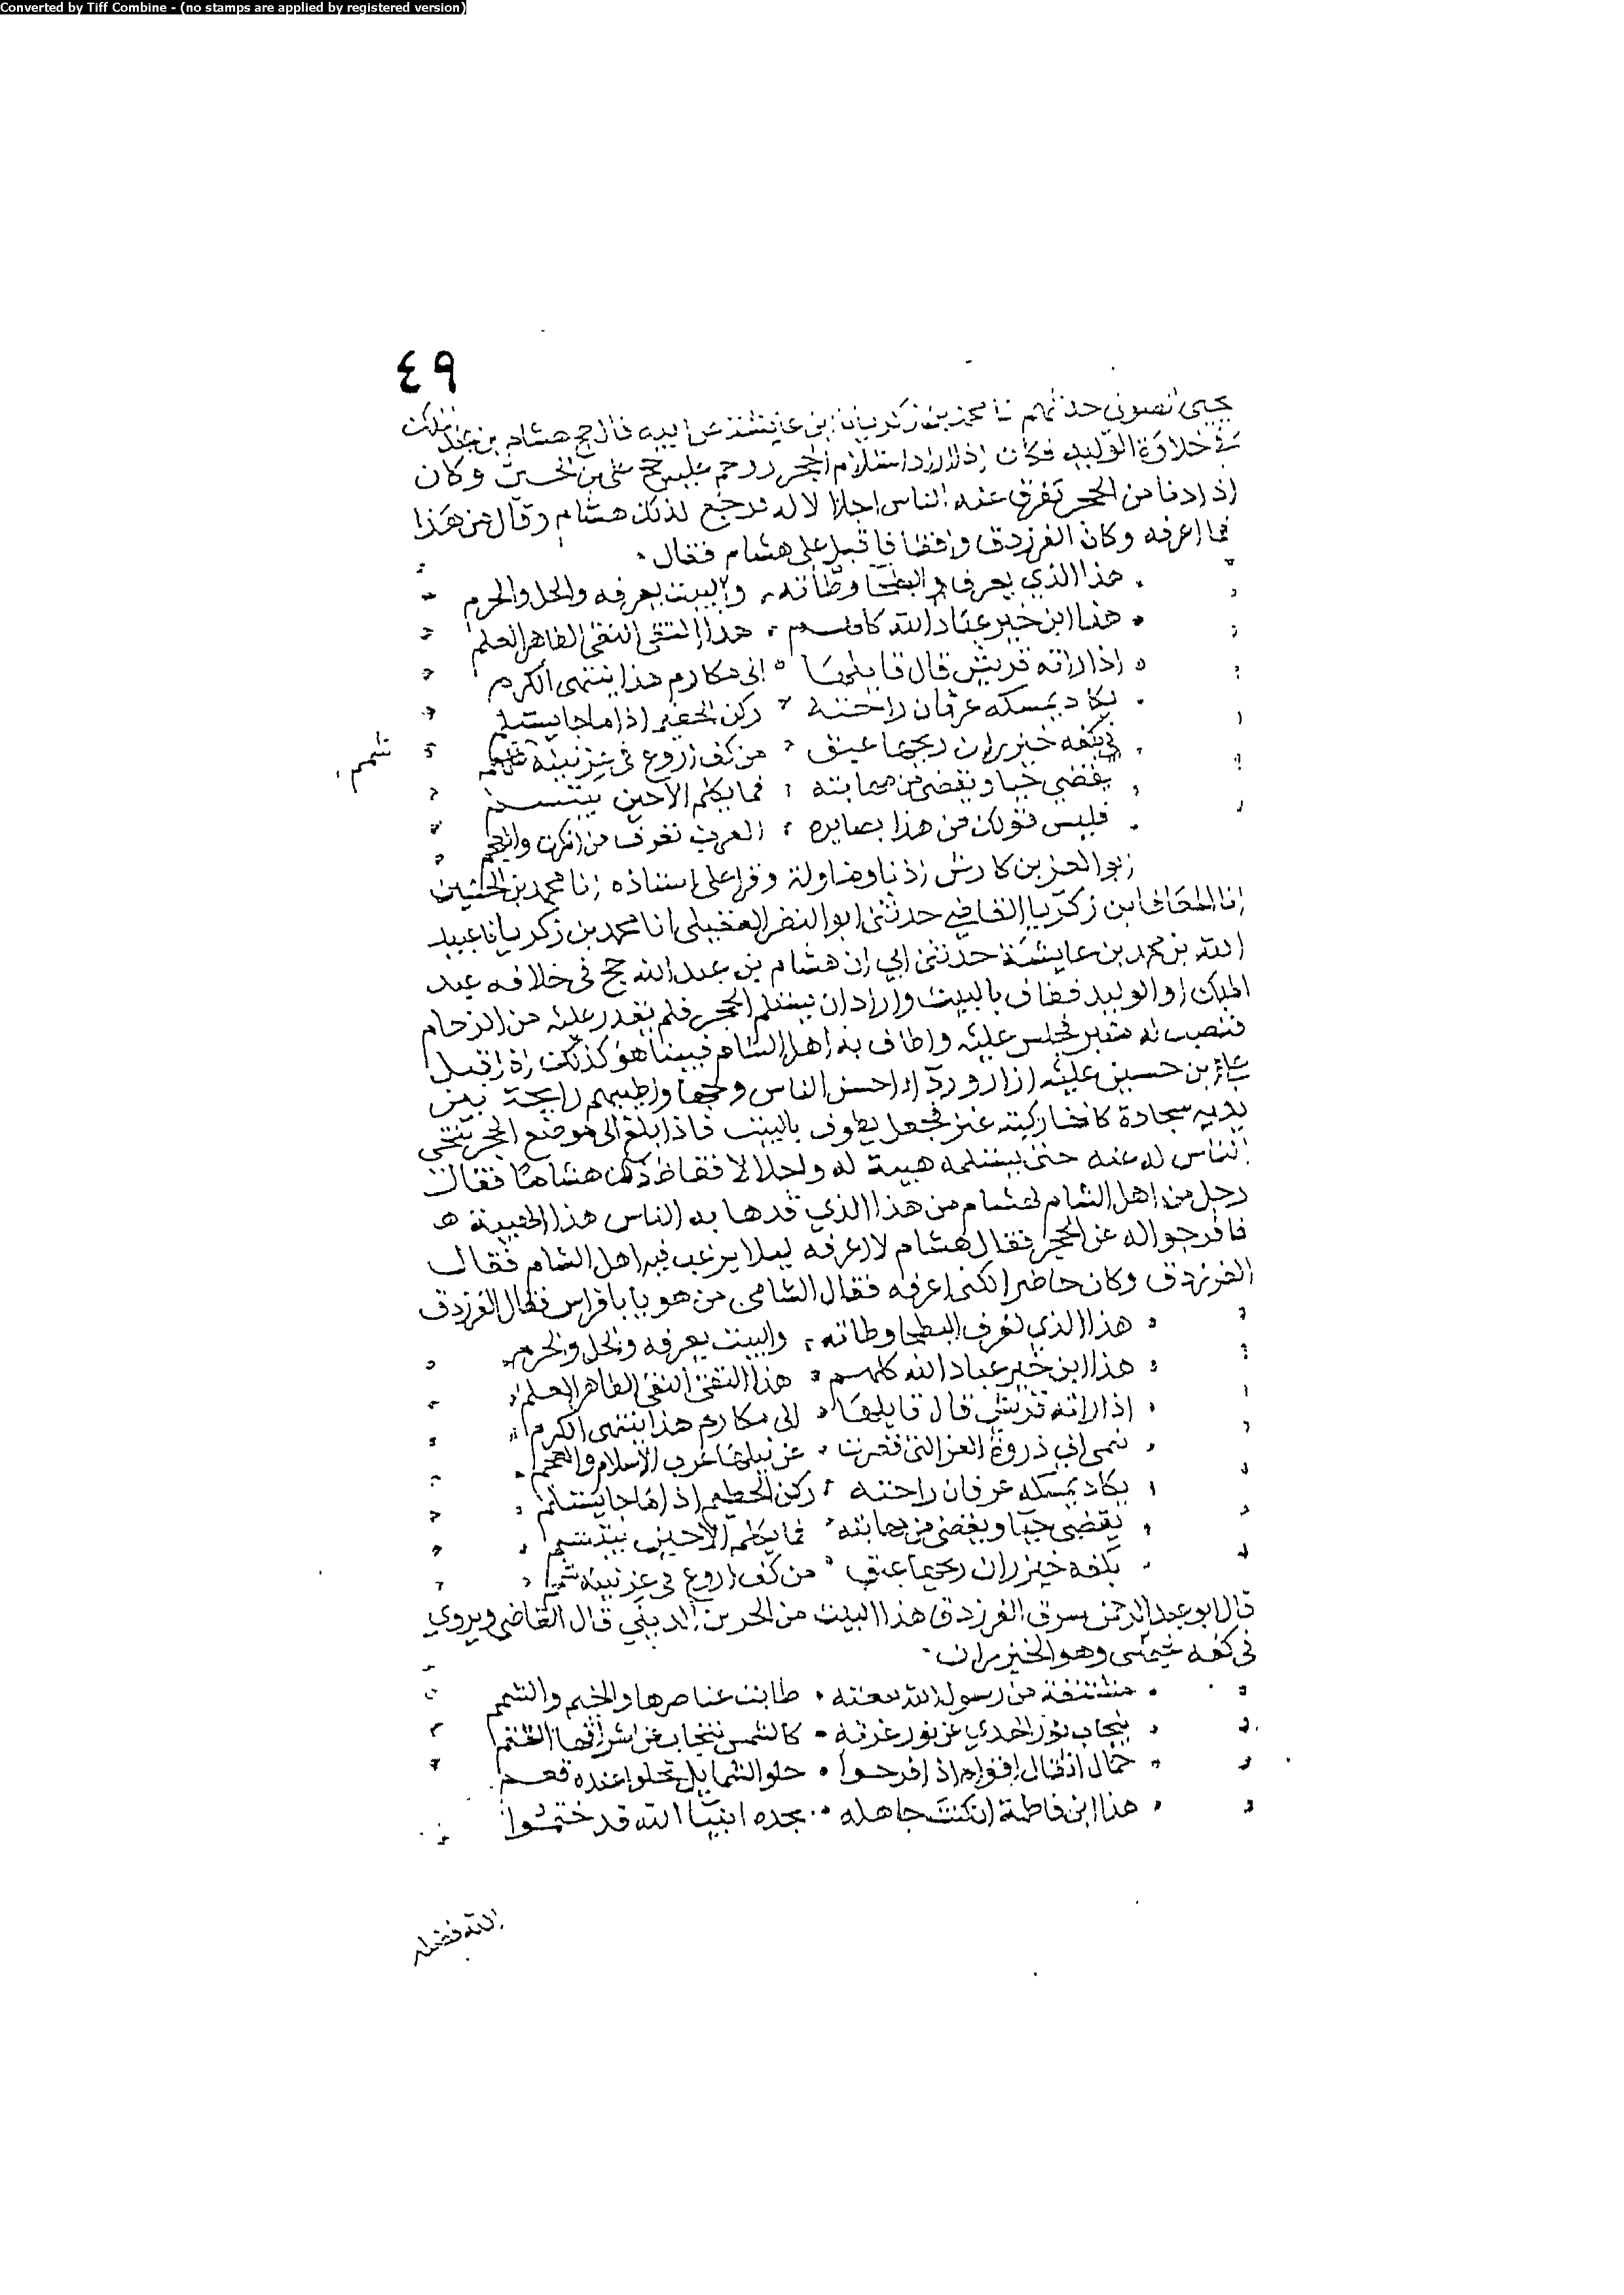 Converted by Tiff Combine - (no stamps are applied by registered version)
٤٩
يحيى الصولي حدثهم نا محمد بن زكريا نا ابن عايشة عن ابيه قال حج هشام بن عبد الملك
في خلافة الوليد فكان اذا اراد استلام الحجر زوحم عليه حج علي بن الحسين وكان
اذا دنا من الحجر تفرق عنه الناس اجلالا له فوجم لذلك هشام وقال من هذا
فما اعرفه وكان الفرزدق واقفا فاقبل على هشام فقال
هذا الذي يعرف البطحا وطاته والبيت يعرفه والحل والحرم
هذا ابن خير عباد الله كلهم هذا التقي النقي الطاهر العلم
اذا راته قريش قال قايلها الى مكارم هذا ينتهي الكرم
يكاد يمسكه عرفان راحته ركن الحطيم اذا ما جا يستلم
في كفه خيزران ريحها عبق من كف اروع في عرنينه شمم
شمم
يغضي حيا ويغضى من مهابته فما يكلم الا حين يبتسم
فليس قولك من هذا بضايره العرب تعرف من انكرت والعجم
ابو العز بن كادش اذنا ومناولة وقرا على اسناده انا محمد بن الحسين
انا المعافا بن زكريا القاضي حدثني ابو النضر العقيلي انا محمد بن زكريا نا عبيد
الله بن محمد بن عايشة حدثني ابي ان هشام بن عبد الله حج في خلافه عبد
الملك او الوليد فطاف بالبيت واراد ان يستلم الحجر فلم يقدر عليه من الزحام
فنصب له منبر فجلس عليه واطاف به اهل الشام فبينا هو كذلك اذ اقبل
علي بن حسين عليه ازار وردا احسن الناس وجها واطيبهم رايحة بين
يديه سجادة كانها ركبة عنز فجعل يطوف بالبيت فاذا بلغ الى موضع الحجر تنحى
الناس له عنه حتى يستلمه هيبة له واجلالا فغاظ ذلك هشاما فقال
رجل من اهل الشام لهشام من هذا الذي قد هابه الناس هذا الهيبة
فافرجوا له عن الحجر فقال هشام لا اعرفه ليلا يرغب فيه اهل الشام فقال
الفرزدق وكان حاضرا لكني اعرفه فقال الشامي من هو يا با فراس فقال الفرزدق
هذا الذي تعرف البطحا وطاته والبيت يعرفه والحل والحرم
هذا ابن خير عباد الله كلهم هذا التقي النقي الطاهر العلم
اذا راته قريش قال قايلها الى مكارم هذا ينتهي الكرم
ينمى الى ذروة العز التي قصرت عن نيلها عرب الاسلام والعجم
يكاد يمسكه عرفان راحته ركن الحطيم اذا ما جا يستلم
يغضي حيا ويغضى من مهابته فما يكلم الا حين يبتسم
بكفه خيزران ريحها عبق من كف اروع في عرنينه شمم
قال ابو عبد الرحمن سرق الفرزدق هذا البيت من الحزين الديني قال القاضي ويروي
في كفه جهني وهو الخيزران
مشتقة من رسول الله نبعته طابت عناصرها والخيم والشيم
ينجاب نور الهدي عن نور غرته كالشمس تنجاب عن اشراقها القتم
حمال اثقال اقوام اذا فدحوا حلو الشمايل تحلوا عنده نعم
هذا ابن فاطمة ان كنت جاهله بجده انبيا الله قد ختموا
الله فضله